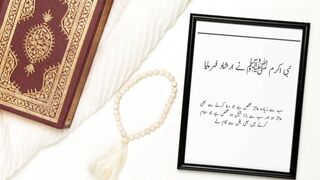 نبی اکرم ﷺ نے ارشاد فرمایا
سب سے زیادہ عاجز شخص ہے جو دعا کرنے سے بھی
عاجز ہو اور سب سے بڑا بخیل وہ شخص ہے جو سلام
کرنے میں بھی بخل سے کام لے